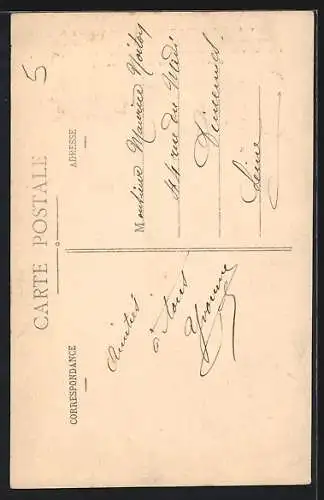 5
CARTE POSTALE
CORRESPONDANCE
ADRESSE
Amitiés
à tous
Yvonne
Monsieur Maurice
rue du Midi
Vincennes
Seine